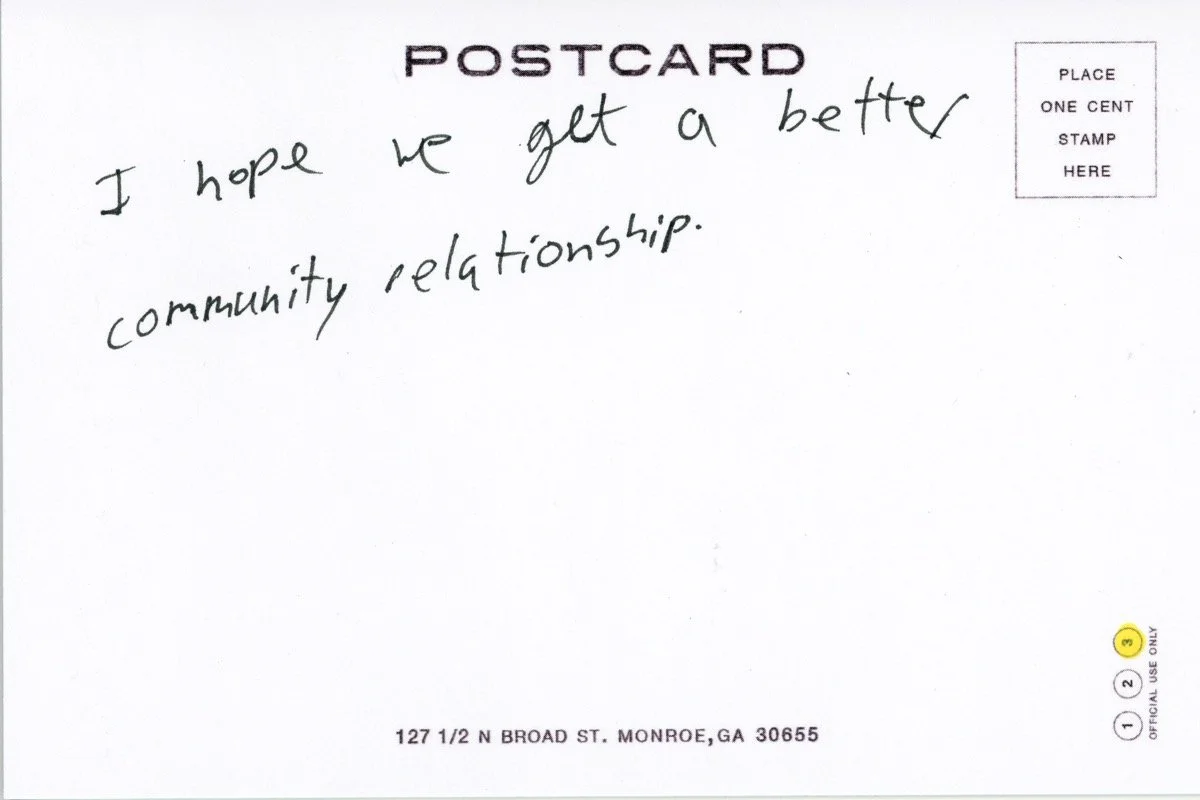 POSTCARD
PLACE
ONE CENT
STAMP
HERE
I hope we get a better
community relationship.
127 1/2 N BROAD ST. MONROE, GA 30655
1 2 3
OFFICIAL USE ONLY